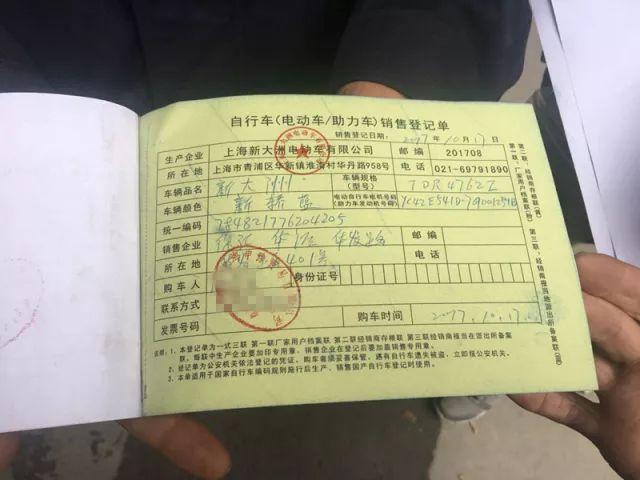 自行车(电动车/助力车)销售登记单
销售登记日期: 2017年10月17日
生产企业 上海新大洲电动车有限公司 邮编 201708
所在地 上海市青浦区华新镇淮海村华丹路958号 电话 021-69791890
车辆品名 新大洲 车辆规格(型号) TDR476ZZ
车辆颜色 新轿蓝 电动自行车电机号码(助力车发动机号码)
统一编码
销售企业 邮编
所在地 401号 电话
购车人 身份证号
联系方式
发票号码 购车时间 2017.10.17
说明: 1、本登记单为一式三联 第一联厂家用户档案联 第二联经销商存根联 第三联经销商报当在派出所备案
联, 每联中生产企业要加印专用章, 销售企业在登记后要加盖销售专用章。
2、登记单为公安机关依法登记的凭证, 购车者须妥善保管, 遇有自行车遗失被盗, 立即报公安机关
3、本单适用于国家自行车编码规则施行后生产、销售国产自行车登记时使用。
第一联:厂家用户档案联(白) 第二联:经销商存根联(黄)
第三联:经销商报当地派出所备案联